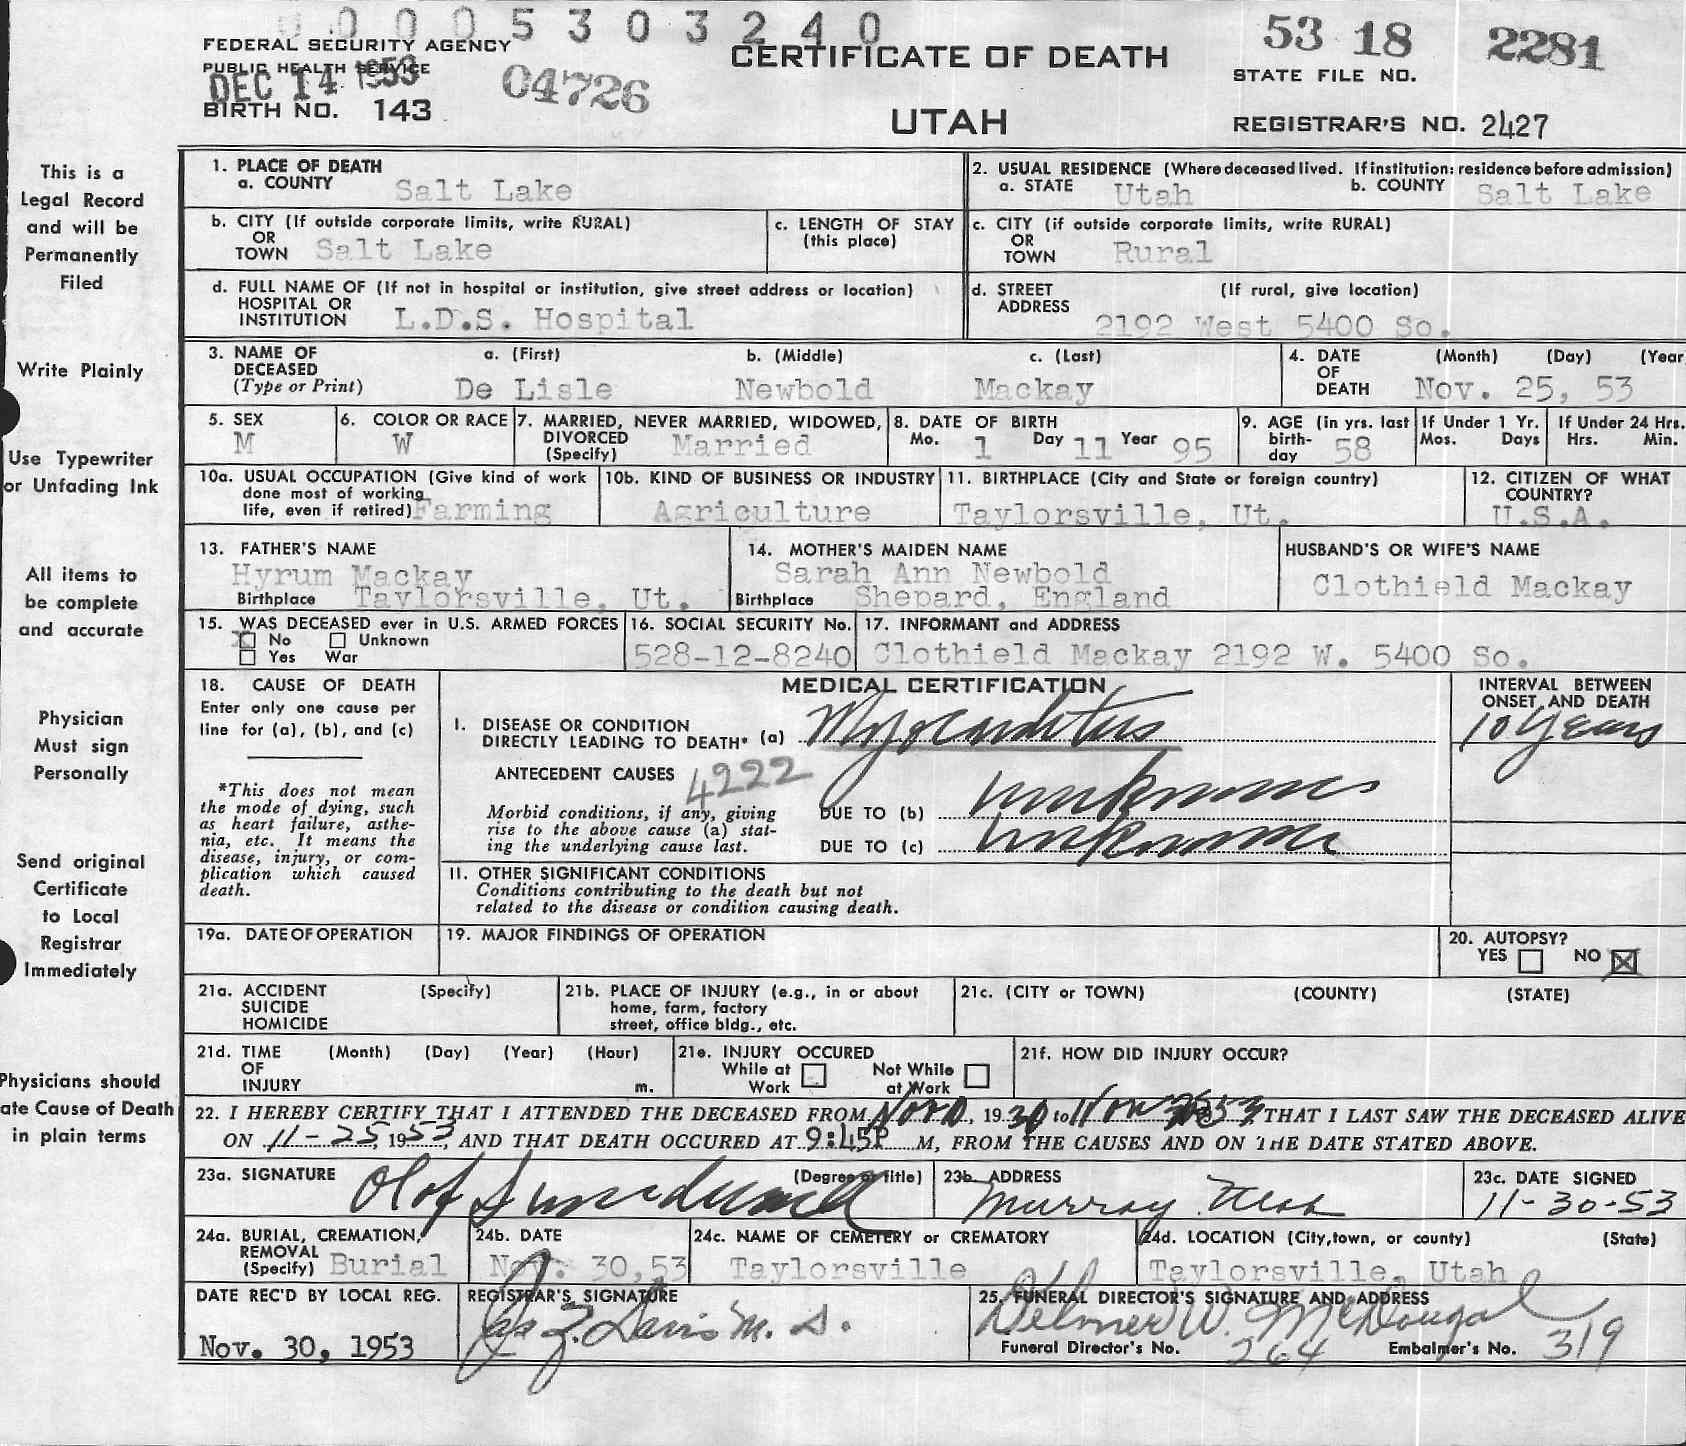 0005303240
FEDERAL SECURITY AGENCY
PUBLIC HEALTH SERVICE
DEC 14 1953
BIRTH NO. 143
04726
CERTIFICATE OF DEATH
UTAH
53 18 2281
STATE FILE NO.
REGISTRAR'S NO. 2427
This is a
Legal Record
and will be
Permanently
Filed
Write Plainly
Use Typewriter
or Unfading Ink
All items to
be complete
and accurate
Physician
Must sign
Personally
Send original
Certificate
to Local
Registrar
Immediately
Physicians should
ate Cause of Death
in plain terms
1. PLACE OF DEATH
a. COUNTY Salt Lake
2. USUAL RESIDENCE (Where deceased lived. If institution: residence before admission)
a. STATE Utah b. COUNTY Salt Lake
b. CITY (If outside corporate limits, write RURAL)
OR
TOWN Salt Lake
c. LENGTH OF STAY
(this place)
c. CITY (if outside corporate limits, write RURAL)
OR
TOWN Rural
d. FULL NAME OF (If not in hospital or institution, give street address or location)
HOSPITAL OR
INSTITUTION L.D.S. Hospital
d. STREET (If rural, give location)
ADDRESS
2192 West 5400 So.
3. NAME OF a. (First) b. (Middle) c. (Last)
DECEASED
(Type or Print) De Lisle Newbold Mackay
4. DATE (Month) (Day) (Year
OF
DEATH Nov. 25, 53
5. SEX
M
6. COLOR OR RACE
W
7. MARRIED, NEVER MARRIED, WIDOWED,
DIVORCED
(Specify) Married
8. DATE OF BIRTH
Mo. 1 Day 11 Year 95
9. AGE (in yrs. last
birth-
day 58
If Under 1 Yr.
Mos. Days
If Under 24 Hrs.
Hrs. Min.
10a. USUAL OCCUPATION (Give kind of work
done most of working
life, even if retired) Farming
10b. KIND OF BUSINESS OR INDUSTRY
Agriculture
11. BIRTHPLACE (City and State or foreign country)
Taylorsville, Ut.
12. CITIZEN OF WHAT
COUNTRY?
U.S.A.
13. FATHER'S NAME
Hyrum Mackay
Birthplace Taylorsville, Ut.
14. MOTHER'S MAIDEN NAME
Sarah Ann Newbold
Birthplace Shepard, England
HUSBAND'S OR WIFE'S NAME
Clothield Mackay
15. WAS DECEASED ever in U.S. ARMED FORCES
X No Unknown
Yes War
16. SOCIAL SECURITY No.
528-12-8240
17. INFORMANT and ADDRESS
Clothield Mackay 2192 W. 5400 So.
18. CAUSE OF DEATH
Enter only one cause per
line for (a), (b), and (c)
*This does not mean
the mode of dying, such
as heart failure, asthe-
nia, etc. It means the
disease, injury, or com-
plication which caused
death.
MEDICAL CERTIFICATION
I. DISEASE OR CONDITION
DIRECTLY LEADING TO DEATH* (a) Myocarditis
ANTECEDENT CAUSES 4222
Morbid conditions, if any, giving
rise to the above cause (a) stat-
ing the underlying cause last.
DUE TO (b) unknown
DUE TO (c) unknown
INTERVAL BETWEEN
ONSET AND DEATH
10 years
II. OTHER SIGNIFICANT CONDITIONS
Conditions contributing to the death but not
related to the disease or condition causing death.
19a. DATE OF OPERATION
19. MAJOR FINDINGS OF OPERATION
20. AUTOPSY?
YES NO X
21a. ACCIDENT (Specify)
SUICIDE
HOMICIDE
21b. PLACE OF INJURY (e.g., in or about
home, farm, factory
street, office bldg., etc.
21c. (CITY or TOWN) (COUNTY) (STATE)
21d. TIME (Month) (Day) (Year) (Hour)
OF
INJURY m.
21e. INJURY OCCURED
While at Not While
Work at Work
21f. HOW DID INJURY OCCUR?
22. I HEREBY CERTIFY THAT I ATTENDED THE DECEASED FROM, 1930 to Nov 53, THAT I LAST SAW THE DECEASED ALIVE
ON 11-25, 1953, AND THAT DEATH OCCURED AT 9:45P M, FROM THE CAUSES AND ON THE DATE STATED ABOVE.
23a. SIGNATURE (Degree or Title)
Olof
23b. ADDRESS
Murray Utah
23c. DATE SIGNED
11-30-53
24a. BURIAL, CREMATION,
REMOVAL
(Specify) Burial
24b. DATE
Nov. 30,53
24c. NAME OF CEMETERY or CREMATORY
Taylorsville
24d. LOCATION (City, town, or county) (State)
Taylorsville, Utah
DATE REC'D BY LOCAL REG.
Nov. 30, 1953
REGISTRAR'S SIGNATURE
Davis M. D.
25. FUNERAL DIRECTOR'S SIGNATURE AND ADDRESS
Delmer W. McDougal
Funeral Director's No. 264 Embalmer's No. 319